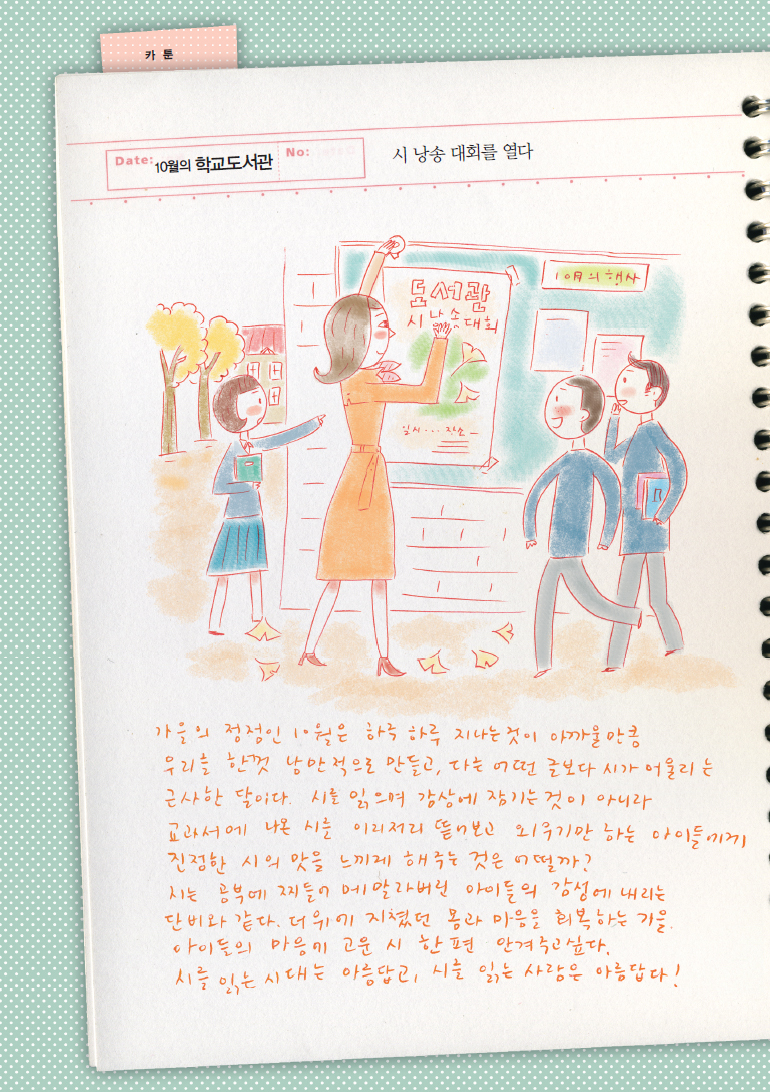 카 툰
Date: 10월의 학교도서관 No:
시 낭송 대회를 열다
도서관
시 낭송대회
10月의 행사
일시... 장소
가을의 정점인 10월은 하루 하루 지나는 것이 아까울만큼
우리를 한껏 낭만적으로 만들고, 다른 어떤 글보다 시가 어울리는
근사한 달이다. 시를 읽으며 감상에 잠기는 것이 아니라
교과서에 나온 시를 이리저리 뜯어보고 외우기만 하는 아이들에게
진정한 시의 맛을 느끼게 해주는 것은 어떨까?
시는 공부에 찌들어 메말라버린 아이들의 감성에 내리는
단비와 같다. 더위에 지쳤던 몸과 마음을 회복하는 가을.
아이들의 마음에 고운 시 한편 안겨주고싶다.
시를 읽는 시대는 아름답고, 시를 읽는 사람은 아름답다!